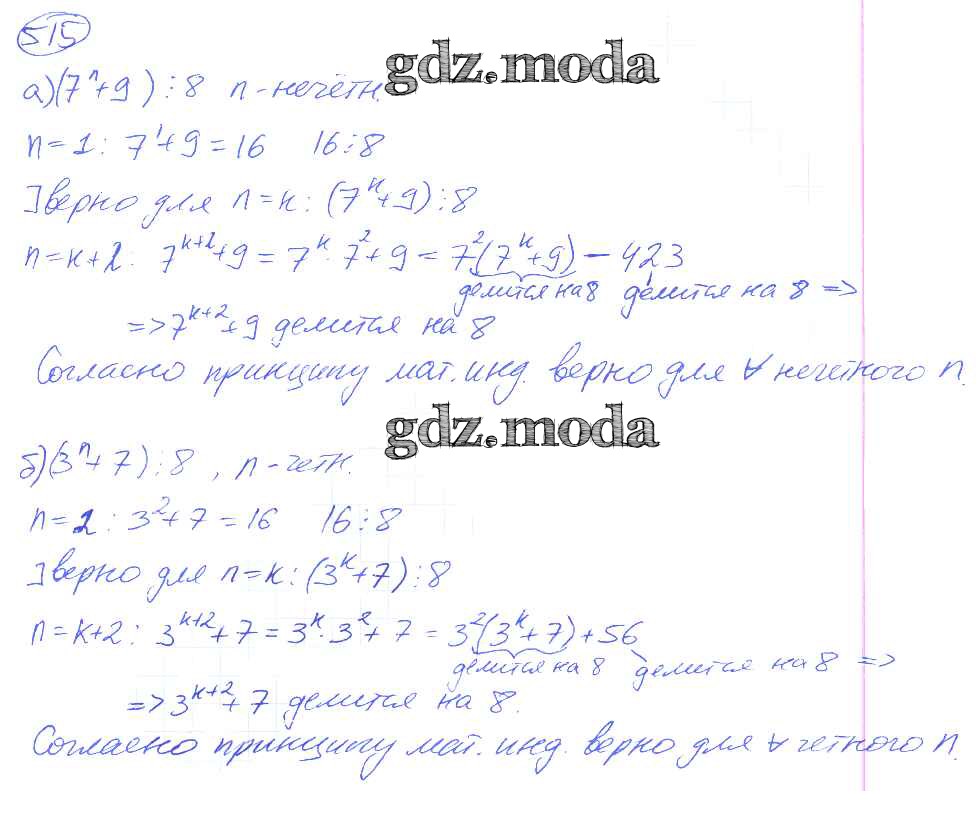 515
gdz.moda
а) (7ⁿ+9) ⋮ 8 n - нечётн.
n=1: 7¹+9=16 16⋮8
] верно для n=k: (7ᵏ+9)⋮8
n=k+2: 7ᵏ⁺²+9 = 7ᵏ·7²+9 = 7²(7ᵏ+9) - 423
делится на 8 делится на 8 =>
=> 7ᵏ⁺²+9 делится на 8
Согласно принципу мат. инд. верно для ∀ нечетного n.
gdz.moda
б) (3ⁿ+7)⋮8, n - четн.
n=2: 3²+7=16 16⋮8
] верно для n=k: (3ᵏ+7)⋮8
n=k+2: 3ᵏ⁺²+7 = 3ᵏ·3²+7 = 3²(3ᵏ+7)+56
делится на 8 делится на 8 =>
=> 3ᵏ⁺²+7 делится на 8.
Согласно принципу мат. инд. верно для ∀ четного n.